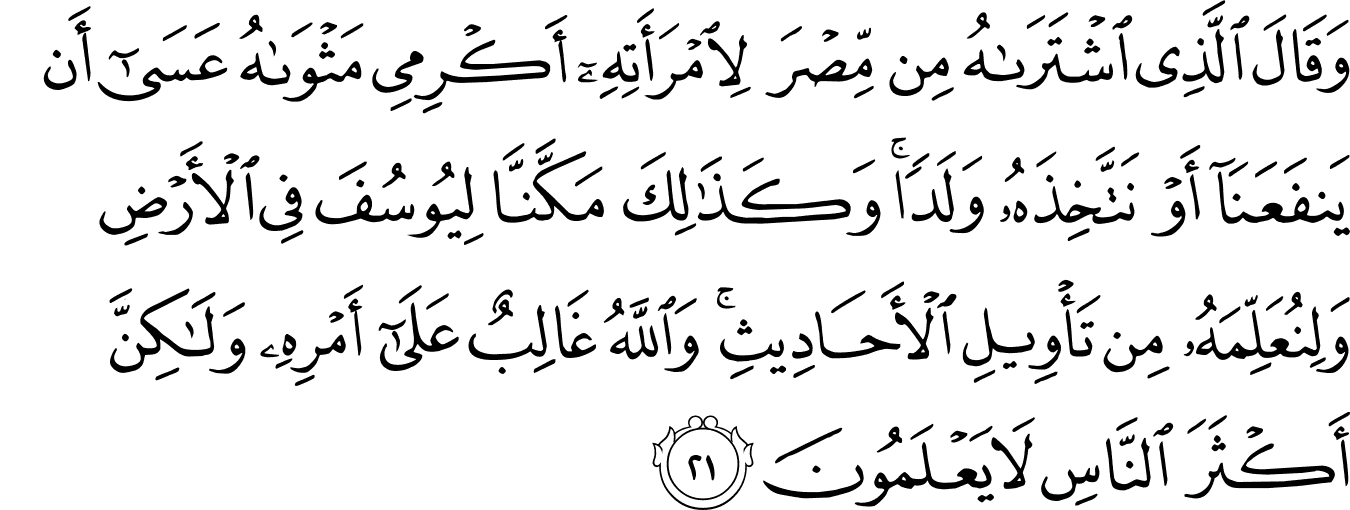 وَقَالَ ٱلَّذِى ٱشْتَرَىٰهُ مِن مِّصْرَ لِٱمْرَأَتِهِۦٓ أَكْرِمِى مَثْوَىٰهُ عَسَىٰٓ أَن
يَنفَعَنَآ أَوْ نَتَّخِذَهُۥ وَلَدًا ۚ وَكَذَٰلِكَ مَكَّنَّا لِيُوسُفَ فِى ٱلْأَرْضِ
وَلِنُعَلِّمَهُۥ مِن تَأْوِيلِ ٱلْأَحَادِيثِ ۚ وَٱللَّهُ غَالِبٌ عَلَىٰٓ أَمْرِهِۦ وَلَـٰكِنَّ
أَكْثَرَ ٱلنَّاسِ لَا يَعْلَمُونَ ٢١